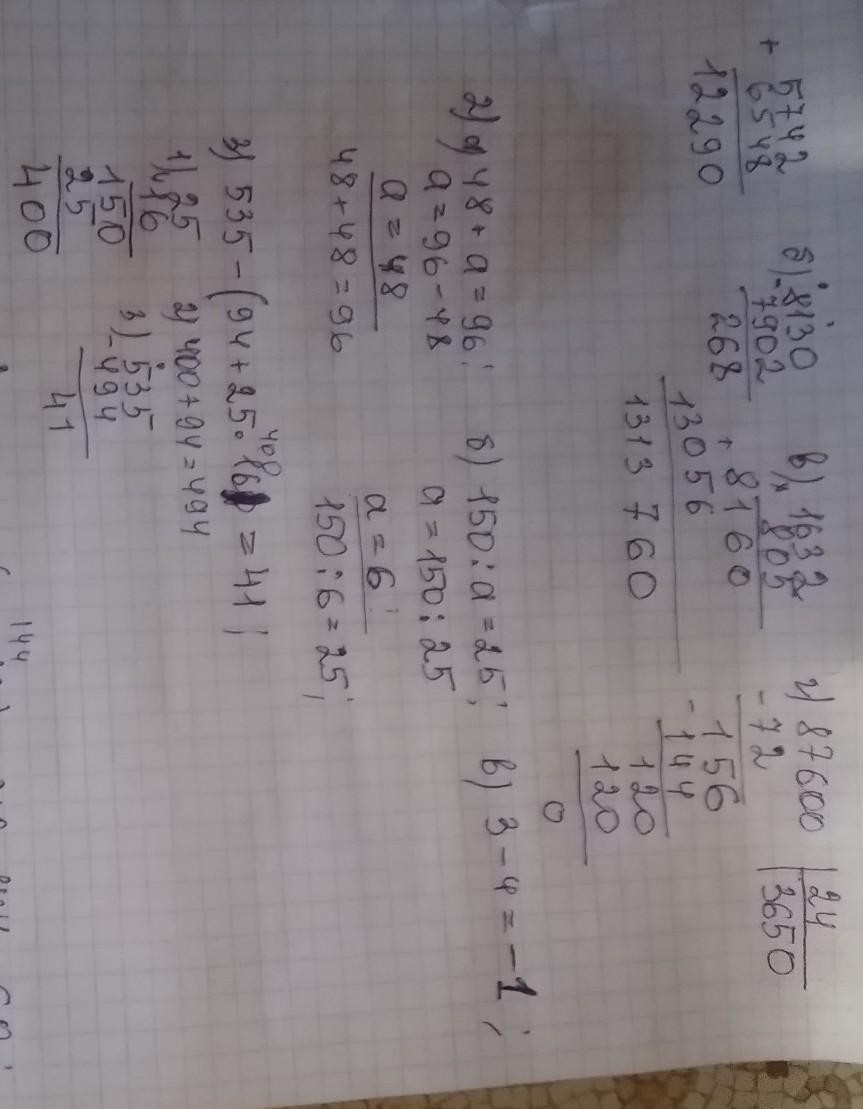 + 5742
6548
12290
б) 8130
- 7902
268
в) 1632
× 805
+ 8160
13056
1313 760
г) 87600 | 24
- 72 3650
156
- 144
120
120
0
2) а) 48 + а = 96;
а = 96 - 48
а = 48
48 + 48 = 96
б) 150 : а = 25;
а = 150 : 25
а = 6;
150 : 6 = 25;
в) 3 - 4 = -1;
3) 535 - (94 + 25 · 16) = 41;
408
1) × 25
16
150
25
400
2) 400 + 94 = 494
3) - 535
494
41
144